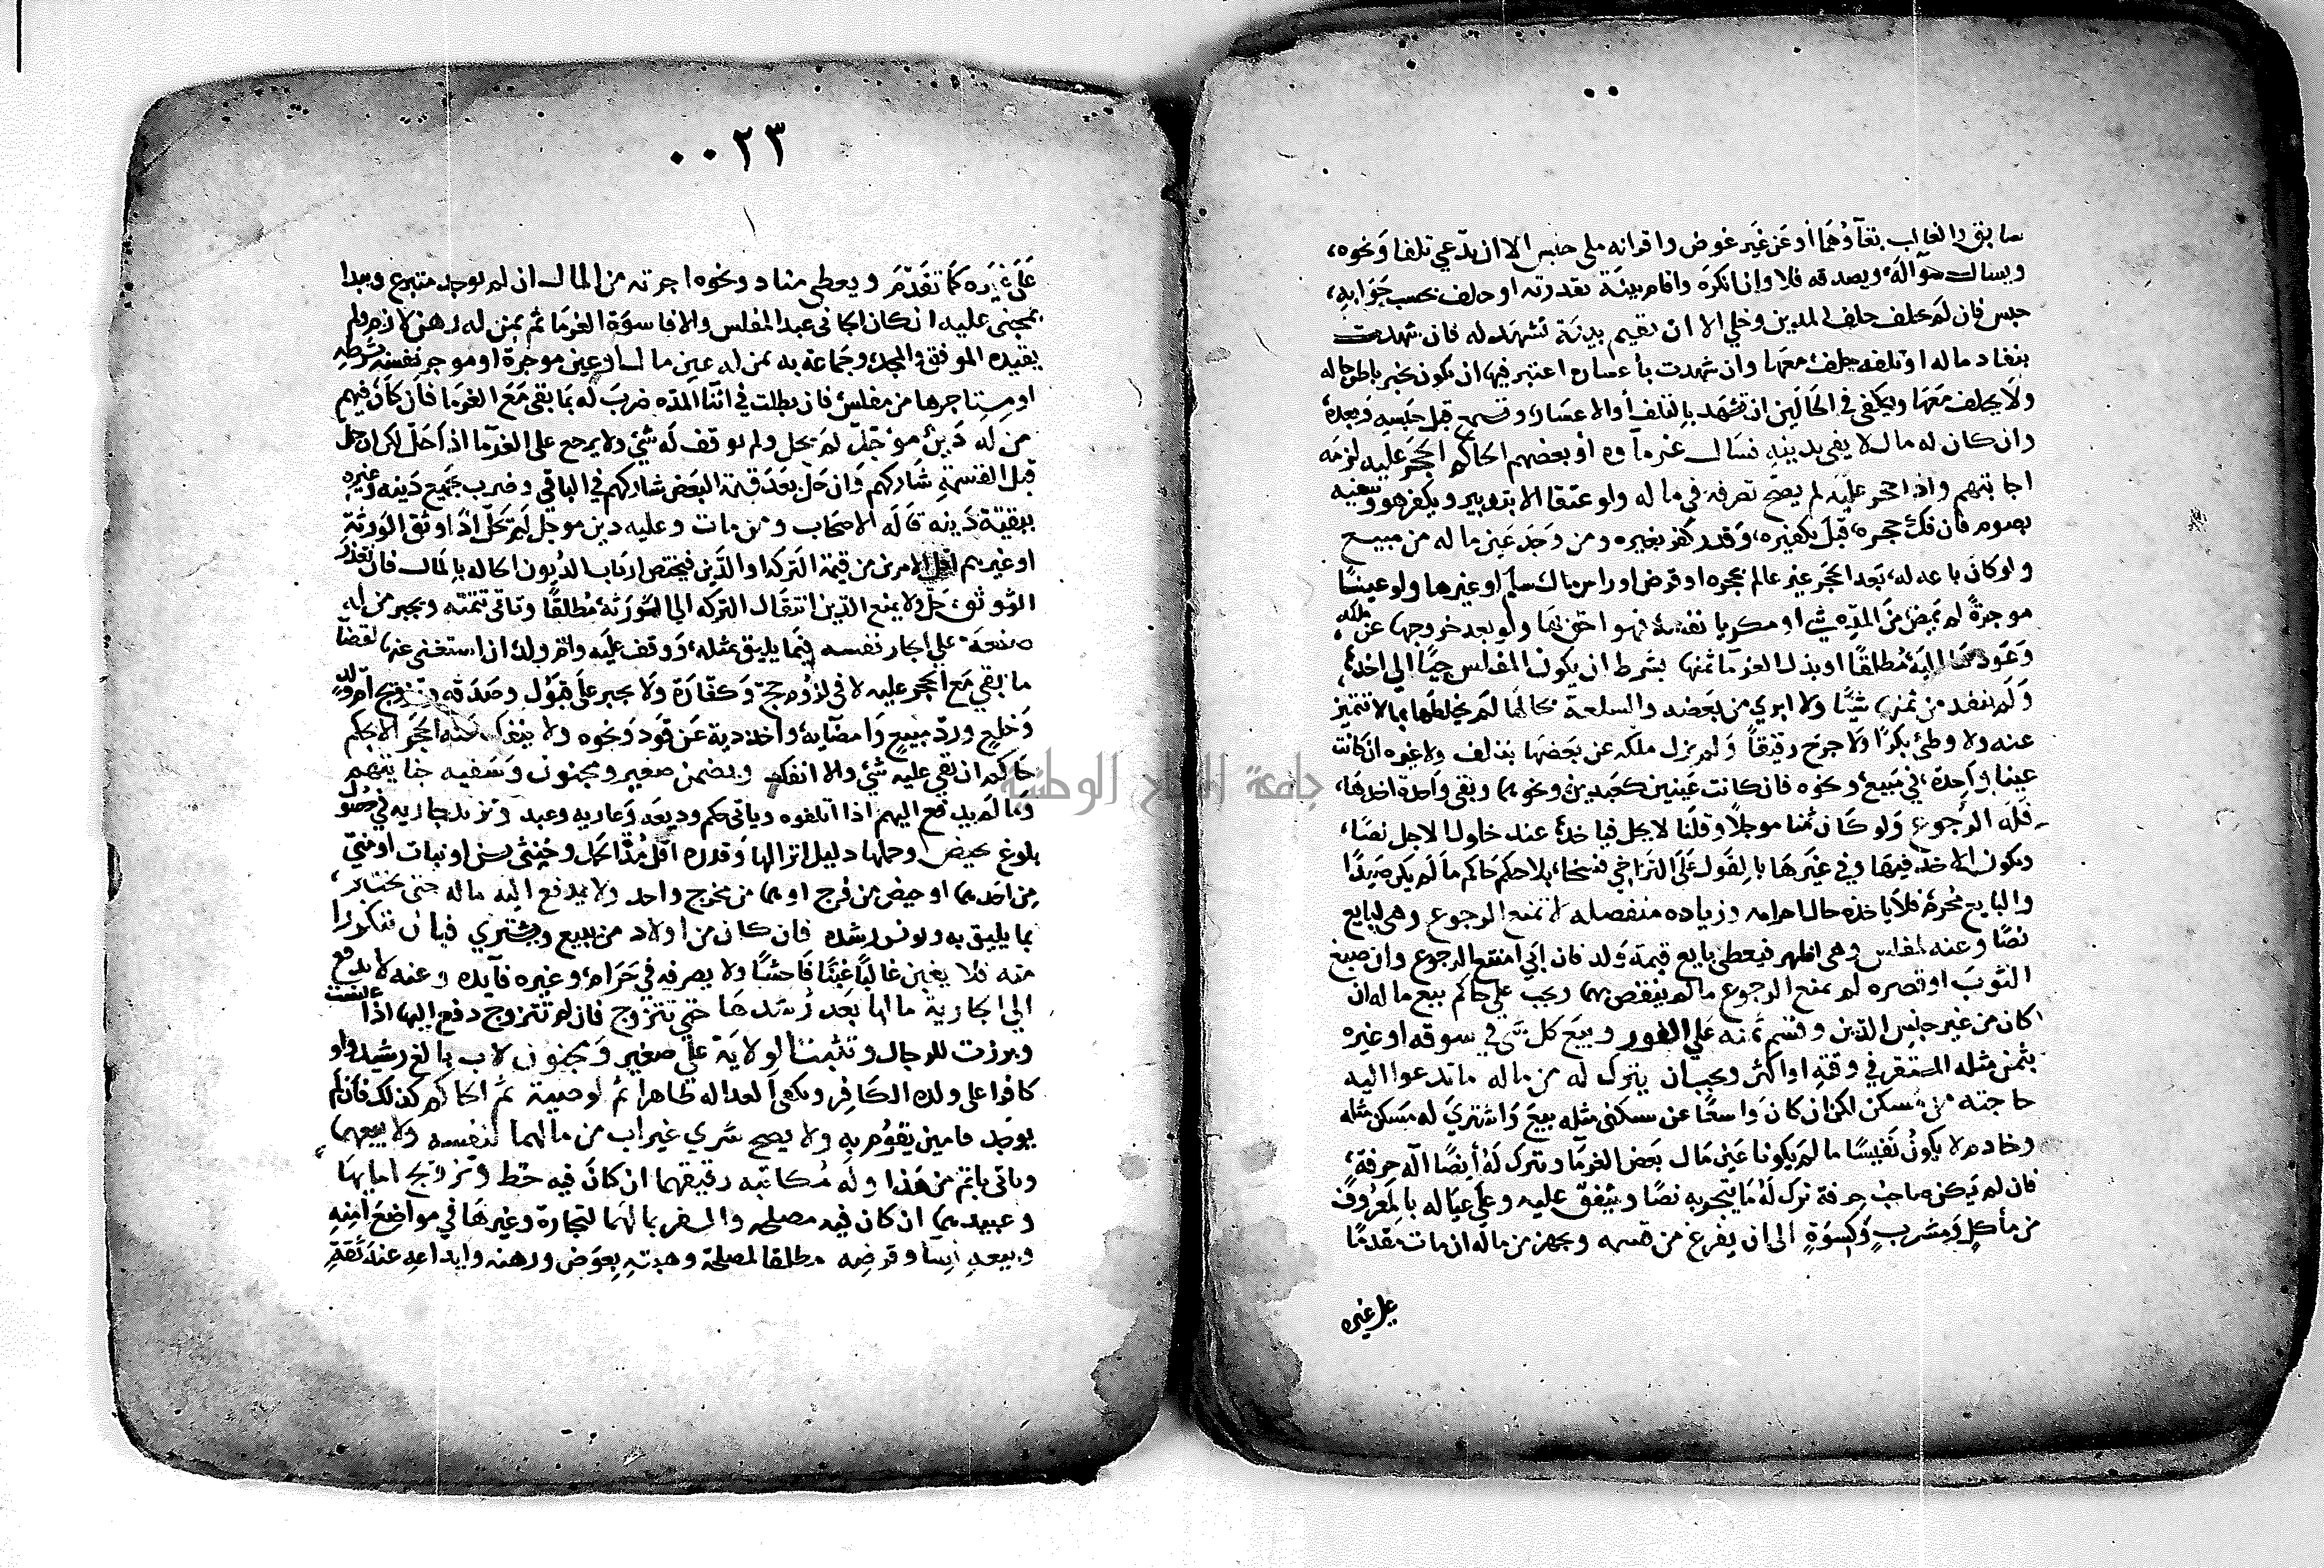 سابق والغالب بقاؤهما أو عن غير عوض واقرانه ملي حبس الا ان يدعي تلفا ونحوه
ويسال سواله ويصدقه فلا وان انكره واقام بينة بقدرته او حلف بحسب جوابه
حبس فان لم يحلف حلف المدين وخلي الا ان يقيم بينة تشهد له فان شهدت
بنفاد ماله او تلفه يحلف معها وان شهدت بأعساره اعتبر فيها ان يكون تخبر باطن حاله
ولا يحلف معها ويكفي في الحالين ان تشهد بالتلف أو الاعسار وتسمع قبل حبسه وبعده
وان كان له مال لا يفي بدينه فسال غرماؤه أو بعضهم الحاكم الحجر عليه لزمه
اجابتهم واذا حجر عليه لم يصح تصرفه في ماله ولو عتقا الا بتدبير ويكفر هو وسفيه
بصوم فان فك حجره قبل تكفيره وقدر كفر بغيره ومن وجد عين ماله من مبيع
ولو كان باعه له بعد الحجر غير عالم بحجره او قرض او راس مال سلم او غيرها ولو عينا
موجرة لم يمض من المدة شي او مكريا نفسه فهو احق بها ولو بعد خروجها عن ملكه
وعودها اليه مطلقا او بذل الغرما ثمنها بشرط ان يكون المفلس حيا الي اخذه
ولم ينقد من ثمنها شيئا ولا ابري من بعضه والسلعة بحالها لم يخلطها بما لا تتميز
عنه ولا وطئ بكرا ولا جرح رقيقا ولم يزل ملكه عن بعضها بتلف ولا غيره ان كانت
عينا واحدة في مبيع ونحوه فان كانت عينين كعبدين ونحوهما وبقي واحدة اخذها
فله الرجوع ولو كان ثمنا موجلا وقلنا لا يحل فياخذه عند حلول الاجل نصا
ويكون الاخذ فيها وفي غيرها بالقول على التراخي فسخا بلا حكم حاكم ما لم يكن صيدا
والبايع محرم فلا ياخذه حال احرامه وزياده منفصله لا تمنع الرجوع وهي لبايع
نصا وعنه لمفلس وهي اظهر فيعطي بايع قيمة ولد فان ابي امتنع الرجوع وان صبغ
الثوب او قصره لم يمنع الرجوع ما لم ينقص بهما ويجب علي حاكم بيع ماله ان
كان من غير جنس الدين وقسم ثمنه علي الفور وبيع كل شي في سوقه او غيره
بثمن مثله المستقر في وقته او اكثر ويجب ان يترك له من ماله ما تدعوا اليه
حاجته من مسكن لكن ان كان واسعا عن سكني مثله بيع واشتري له مسكن مثله
وخادم لا يكون نفيسا ما لم يكونا عين مال بعض الغرما ويترك له أيضا آلة حرفة
فان لم يكن صاحب حرفة ترك له ما يتجر به نصا وينفق عليه وعلي عياله بالمعروف
من مأكل ومشرب وكسوة الى ان يفرغ من قسمه ويجهز من ماله ان مات مقدما
على غيره
٠٠٢٣
على غيره كما تقدم ويعطى مناد ونحوه اجرته من المال ان لم يوجد متبرع ويبدا
بمجنى عليه ان كان الجاني عبد المفلس والا فاسوة الغرما ثم بمن له رهن لازم ولم
يقيده الموفق والمجد وجماعة به ثم من له عين مال او عين موجرة او موجر نفسه بشرطه
او مستاجرها من مفلس فان بطلت في اثنا المدة ضرب له بما بقي مع الغرما فان كان فيهم
من له دين موجل لم يحل ولم يوقف له شي ولا يرجع على الغرما اذا حل لكن ان حل
قبل القسمة شاركهم وان حل بعد قسمة البعض شاركهم في الباقي وضرب بجميع دينه وغيره
ببقية دينه قاله الاصحاب ومن مات وعليه دين موجل لم يحل اذا وثق الورثة
او غيرهم اقل الامرين من قيمة التركة او الدين فيختص ارباب الديون الحاله بالمال فان تعذر
التوثق حل ولا يمنع الدين انتقال التركه الي الورثة مطلقا وتاتي تتمته ويجبر من له
صنعة على ايجار نفسه فيما يليق بمثله ووقف عليه وام ولد ان استغنى عنها لقضا
ما بقي مع الحجر عليه لا في لزوم حج وكفارة ولا يجبر على قبول وصدقه وتزويج ام ولد
وخلع ورد مبيع وامضايه واخذ دية عن قود ونحوه ولا ينفك عنه الحجر الا بحكم
حاكم ان بقي عليه شي والا انفك ويضمن صغير ومجنون وسفيه جنايتهم
وما لم يدفع اليهم اذا اتلفوه وياتي حكم وديعة وعارية وعبد وتزيد جاريه في حصول
بلوغ بحيض وحملها دليل انزالها وقدره اقل مدة الحمل وخنثى بسن او نبات او مني
من احدهما او حيض من فرج او هما من مخرج واحد ولا يدفع اليه ماله حتى يختبر
بما يليق به ويونس رشده فان كان من اولاد من يبيع ويشتري فبان تتكررا
منه فلا يغبن غالبا غبنا فاحشا ولا يصرفه في حرام وغيره فآيده وعنه لا يدفع
الي الجارية مالها بعد رشدها حتى تتزوج فان لم تتزوج دفع اليها اذا عنست
وبرزت للرجال وتثبت الولاية على صغير ومجنون لاب بالغ رشيد ولو
كافرا على ولده الكافر وتكفي العداله ظاهرا ثم لوصية ثم الحاكم كذلك فان لم
يوجد فامين يقوم به ولا يصح شري غير اب من مالهما لنفسه ولا بيعهما
وياتي باتم من هذا وله مكاتبه رقيقهما ان كان فيه حظ وتزويج امايهما
وعبيدهما ان كان فيه مصلحه والسفر بمالهما لتجارة وغيرها في مواضع امنه
وبيعه نسآ وقرضه مطلقا لمصلحة وهبته بعوض ورهنه وايداعه عند ثقة
جامعة النجاح الوطنية